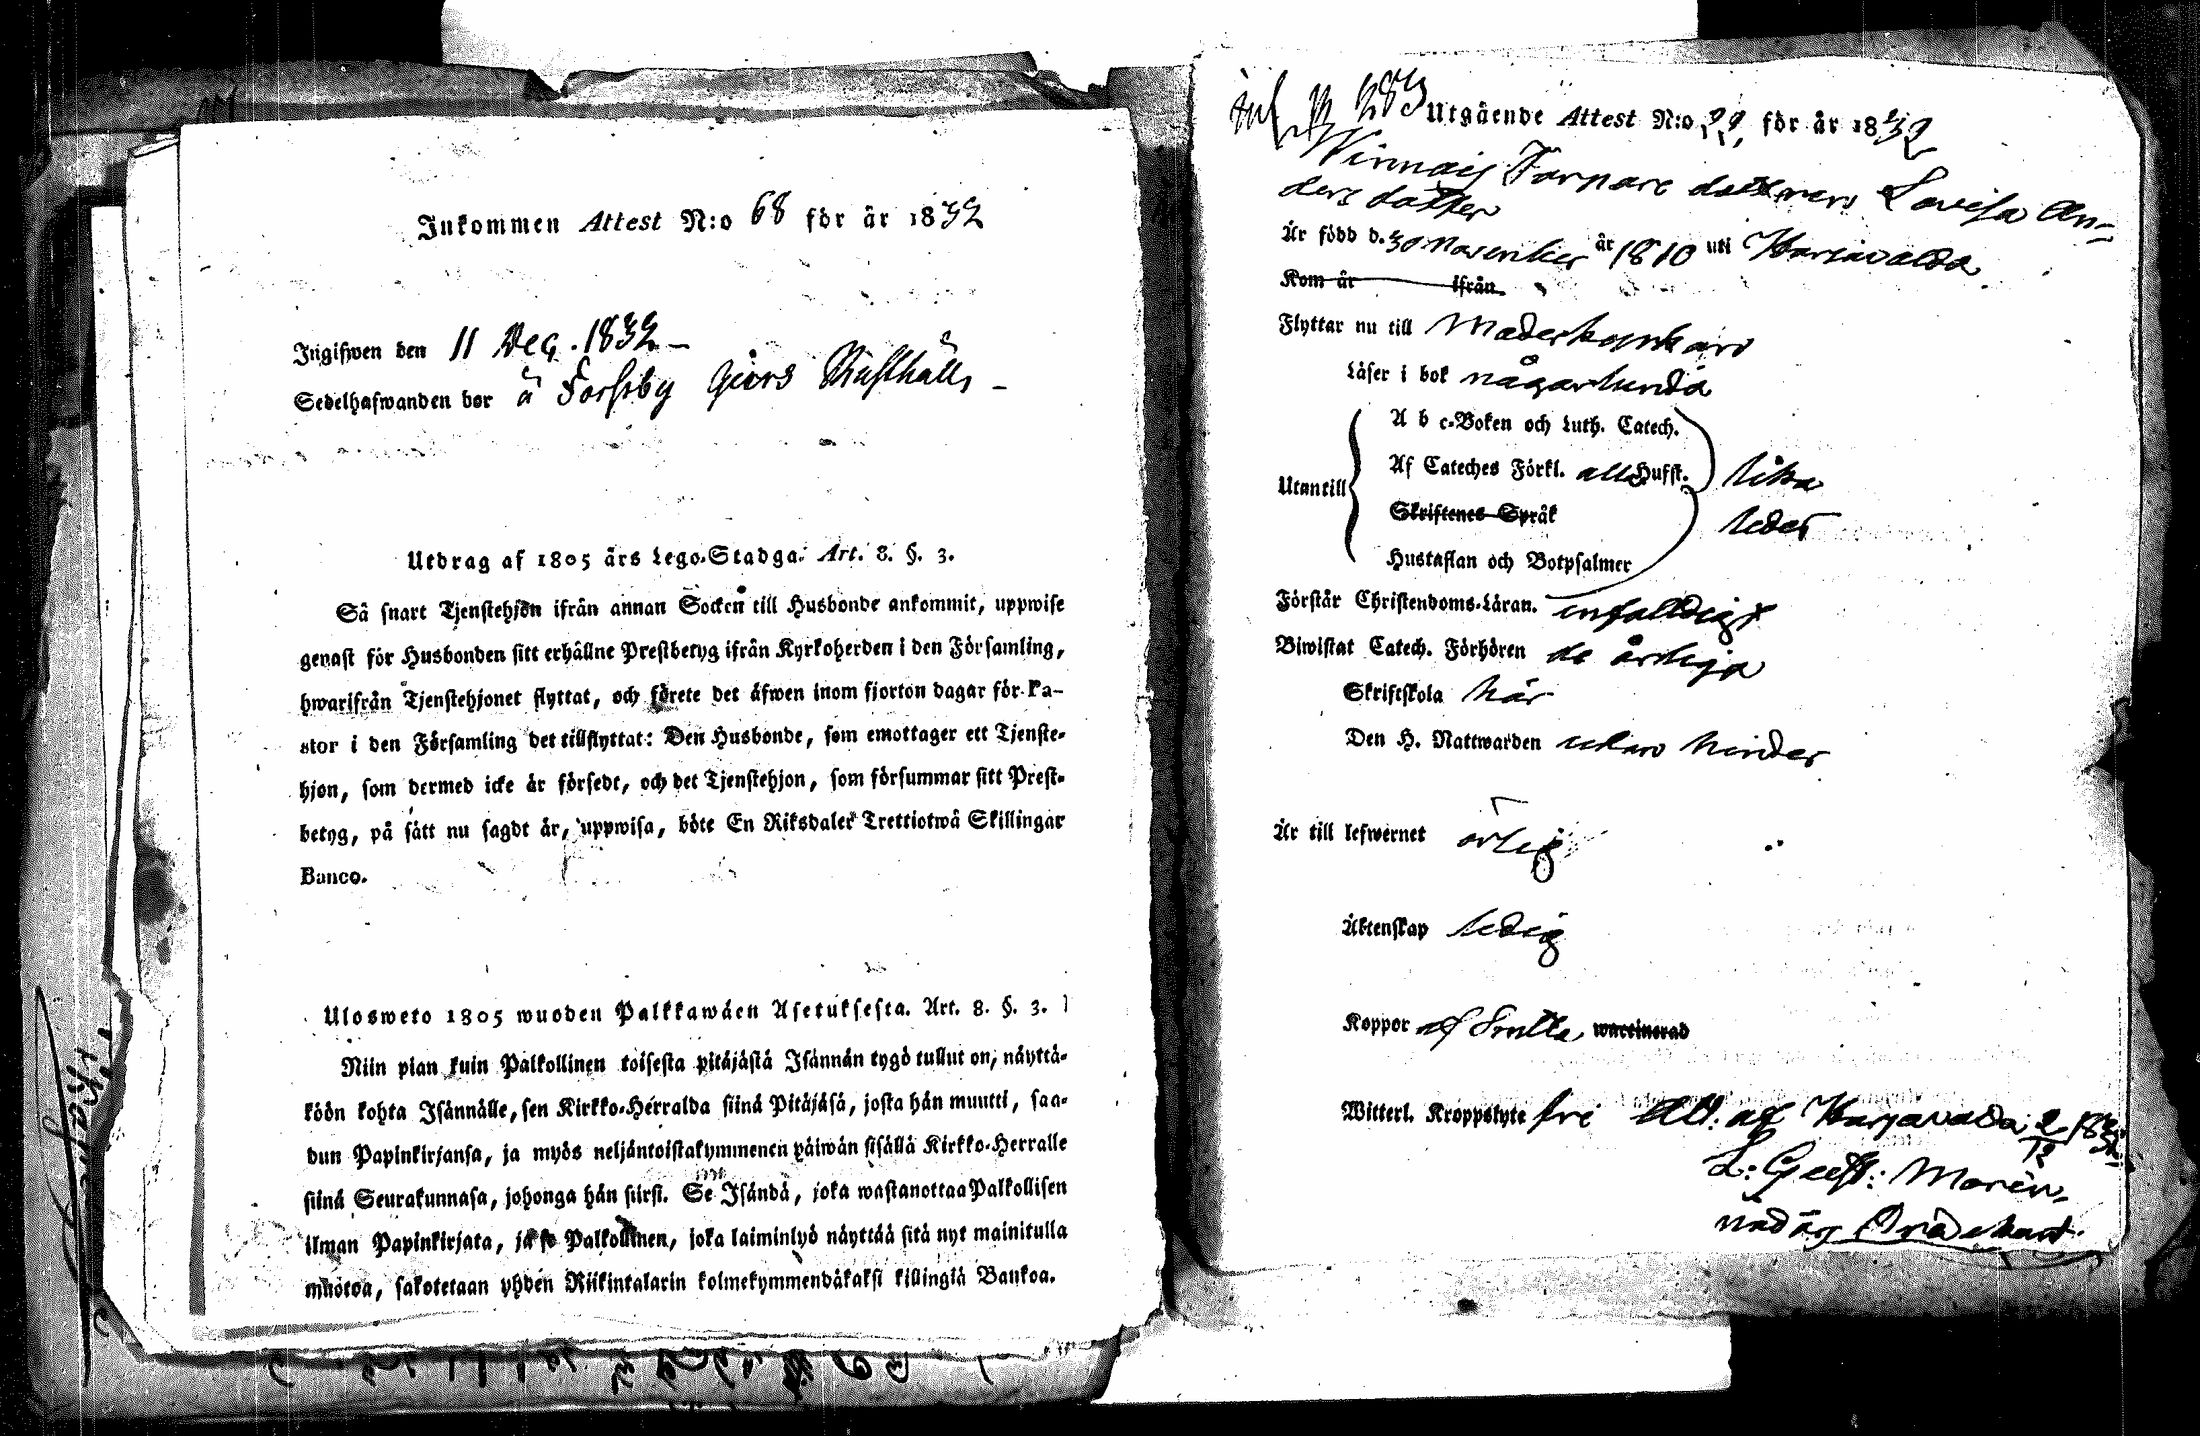 Inkommen Attest N:o 68 för år 1832
Ingifwen den 11 Dec. 1832 –
Sedelhafwanden bor å Forsby Giers Rusthåll, –
Utdrag af 1805 års Lego-Stadga. Art. 8. §. 3.
Så snart Tjenstehjon ifrån annan Socken till Husbonde ankommit, uppwise
genast för Husbonden sitt erhållne Prestbetyg ifrån Kyrkoherden i den Församling,
hwarifrån Tjenstehjonet flyttat, och förete det äfwen inom fjorton dagar för Pa-
stor i den Församling det tillflyttat: Den Husbonde, som emottager ett Tjenste-
hjon, som dermed icke är försedt, och det Tjenstehjon, som försummar sitt Prest-
betyg, på sätt nu sagdt är, uppwisa, böte En Riksdaler Trettiotwå Skillingar
Banco.
Ulosweto 1805 wuoden Palkkawäen Asetuksesta. Art. 8. §. 3.
Niin pian kuin Palkollinen toisesta pitäjästä Isännän tygö tullut on, näyttä-
köön kohta Isännälle, sen Kirkko-Herralda siinä Pitäjäsä, josta hän muutti, saa-
dun Papinkirjansa, ja myös neljäntoistakymmenen päiwän sisällä Kirkko-Herralle
siinä Seurakunnasa, johonga hän siirst. Se Isändä, joka wastanottaa Palkollisen
ilman Papinkirjata, ja se Palkollinen, joka laiminlyö näyttää sitä nyt mainitulla
muotoa, sakotetaan yhden Riikintalarin kolmekymmendäkaksi killingiä Bankoa.
283 Utgående Attest N:o 29, för år 1832
Torpare dottren Lovisa An=
ders dotter
Är född d. 30 November år 1810 uti Harjavalda
Kom år ifrån
Flyttar nu till
Läser i bok någorlunda
A b c-Boken och Luth. Catech.
Af Cateches Förkl. alla Hufst. lika
Utantill
Skriftenes Språk leder
Hustaflan och Botpsalmer
Förstår Christendoms-Läran. enfaldigt
Biwistat Catech. Förhören de årliga
Skriftskola här
Den H. Nattwarden utan hinder
Är till lefwernet ärlig
Äktenskap ledig
Koppor af Smitta waccinerad
Witterl. Kroppslyte fri Att. af Harjavalda 2/12 1832